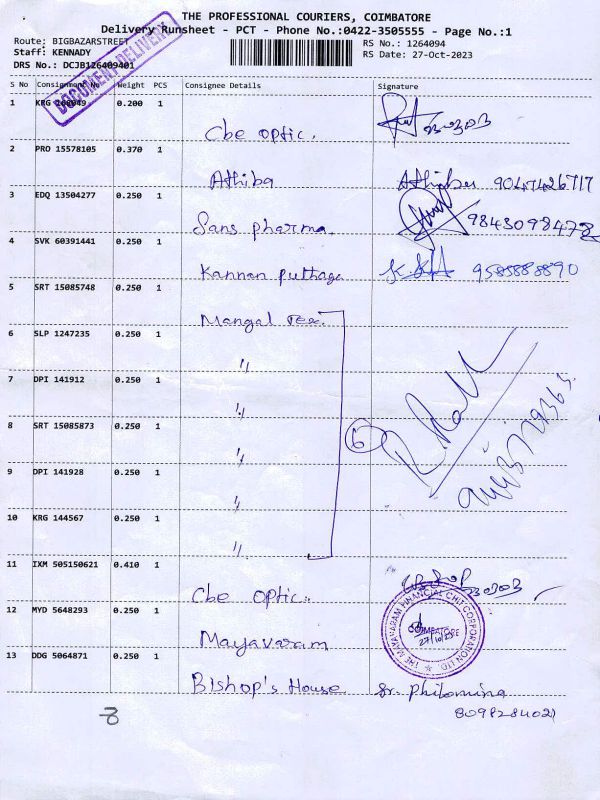 THE PROFESSIONAL COURIERS, COIMBATORE
Delivery Runsheet - PCT - Phone No.:0422-3505555 - Page No.:1
Route: BIGBAZARSTREET
RS No.: 1264094
Staff: KENNADY
RS Date: 27-Oct-2023
DRS No.: DCJB126409401
DOCUMENT DELIVERY
S No Consignment No Weight PCS Consignee Details Signature
1 KRG 0.200 1 Cbe optic.
2 PRO 15578105 0.370 1 Athiba 9047426717
3 EDQ 13504277 0.250 1 Sans pharma. 9843098472
4 SVK 60391441 0.250 1 Kannan puthaga 9585888890
5 SRT 15085748 0.250 1 Mangal Tex.
6 SLP 1247235 0.250 1 "
7 DPI 141912 0.250 1 "
8 SRT 15085873 0.250 1 " 6
9 DPI 141928 0.250 1 "
10 KRG 144567 0.250 1 "
11 IXM 505150621 0.410 1 Cbe optic.
12 MYD 5648293 0.250 1 Mayavaram
THE MAYAVARAM FINANCIAL CHIT CORPORATION LTD.
COIMBATORE
27/10/23
13 DDG 5064871 0.250 1 Bishop's House Sr. Philomina
8098284021